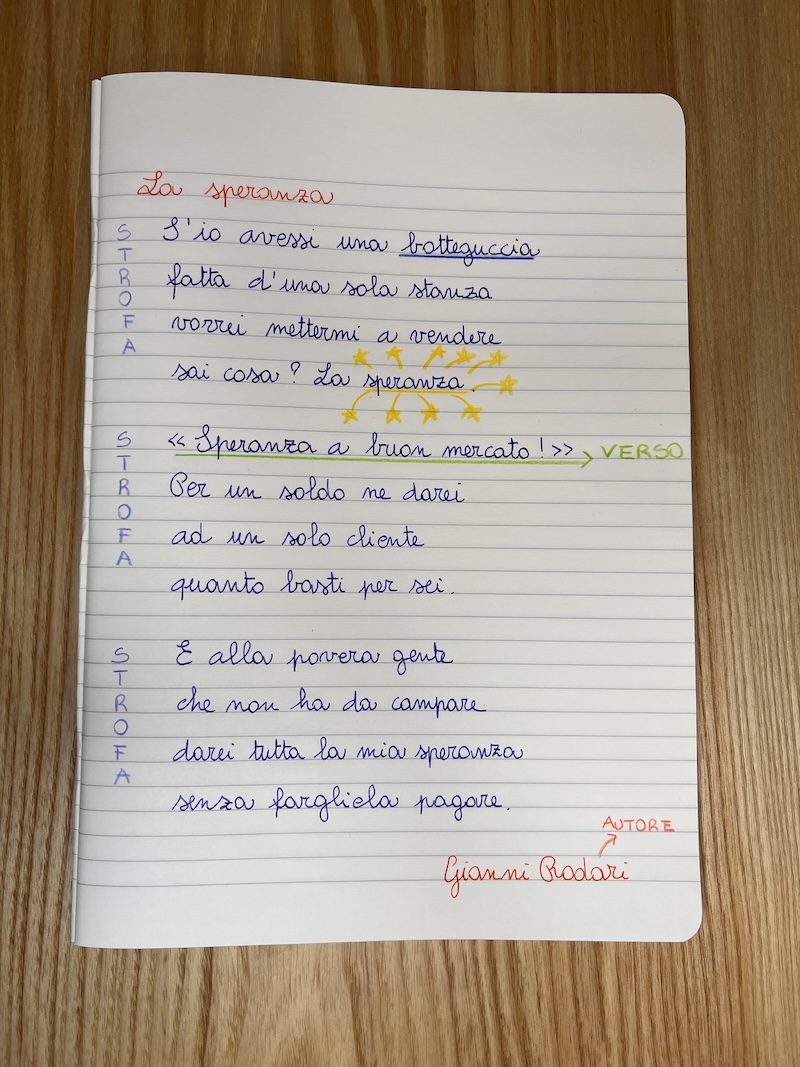 La speranza
S'io avessi una botteguccia
fatta d'una sola stanza
vorrei mettermi a vendere
sai cosa? La speranza.
STROFA
« Speranza a buon mercato!» VERSO
Per un soldo ne darei
ad un solo cliente
quanto basti per sei.
STROFA
E alla povera gente
che non ha da campare
darei tutta la mia speranza
senza fargliela pagare.
STROFA
AUTORE
Gianni Rodari